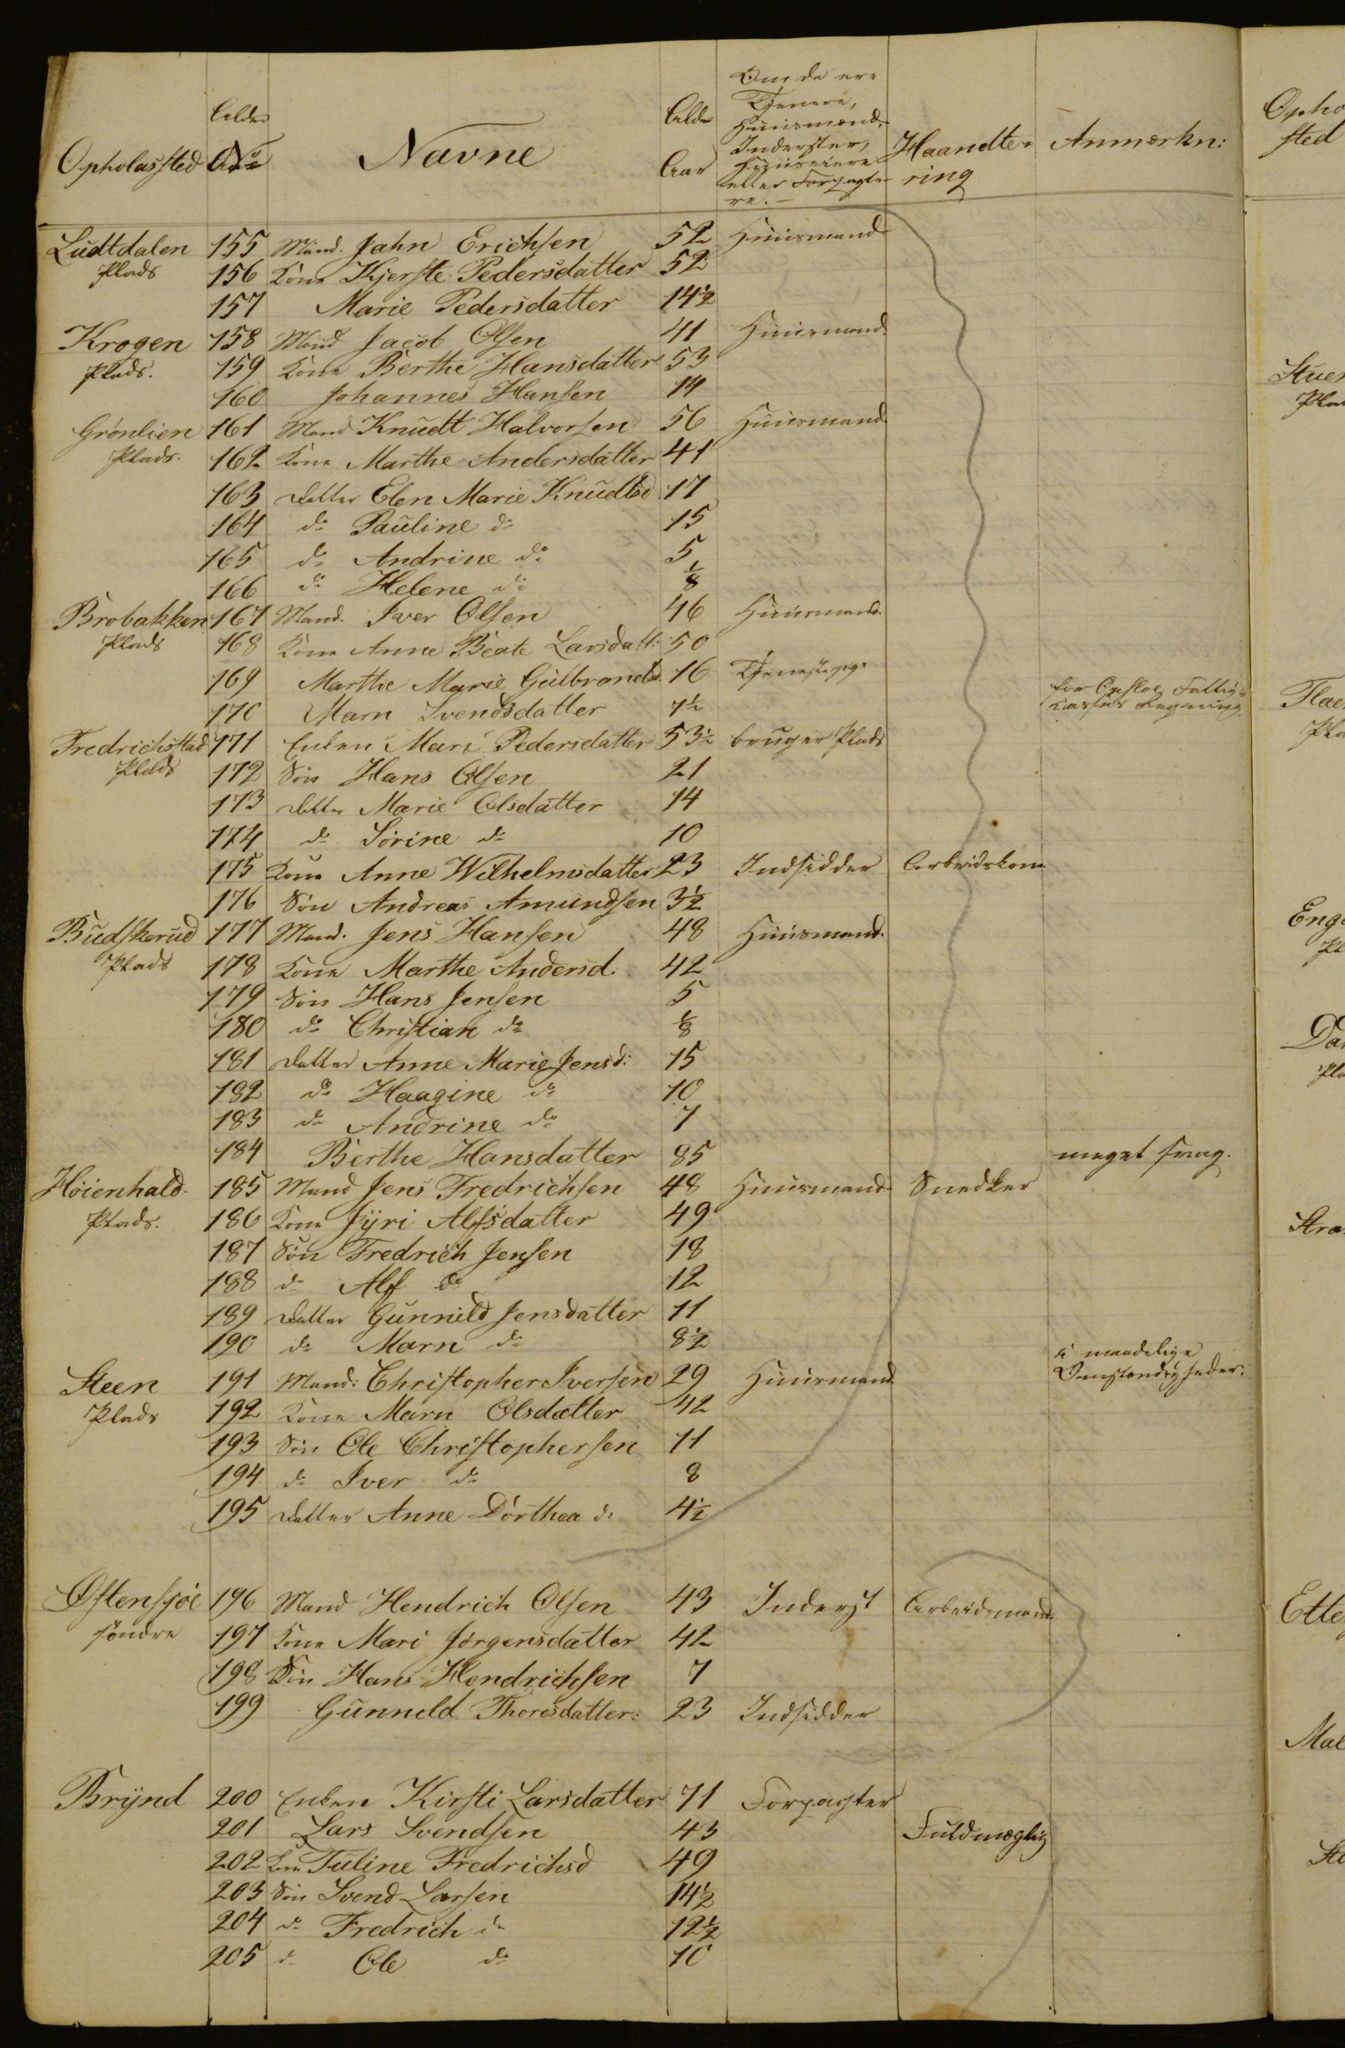 Opholdssted No Navne Alder Aar Om de ere Tjenere, Huusmænd, Inderster, Huuseiere eller Forpagtere.- Haandtering Anmærkn:
Ludtdalen 155 Mand. Jahn Erichsen 52 Huusmand
Plads 156 Kone Kjerste Pedersdatter 52
157 Marie Pedersdatter 14½
Krogen 158 Mand Jacob Olsen 41 Huusmand.
Plads. 159 Kone Berthe Hansdatter 53
160 Johannes Hansen 14
Grönlien 161 Mand Knudt Halvorsen 56 Huusmand.
Plads. 162 Kone Marthe Andersdatter 41
163 Datter Elen Marie Knudtsd 17
164 do Pauline do 15
165 do Andrine do 5
166 do Helene do ⅛
Brobakken 167 Mand. Iver Olsen 46 Huusmand.
Plads 168 Kone Anne Beate Larsdatt: 50
169 Marthe Marie Gulbrandsd. 16 Tjenestepige
170 Marn Svendsdatter 7½ for Opsloe Fattig-Kasses Regning
Fredrichstad 171 Enken Mari Pedersdatter 53½ bruger Plads
Plads 172 Sön Hans Olsen 21
173 Datter Marie Olsdatter 14
174 do Sörine do 10
175 Kone Anne Wilhelmsdatter 23 Indsidder Arbeidskone
176 Sön Andreas Amundsen 3½
Budskerud 177 Mand. Jens Hansen 48 Huusmand.
Plads 178 Kone Marthe Andersd. 42
179 Sön Hans Jensen 5
180 do Christian do ⅛
181 Datter Anne Marie Jensd: 15
182 do Haagine do 10
183 do Andrine do 7
184 Berthe Hansdatter 85 meget svag.
Höienhald. 185 Mand Jens Fredrichsen 48 Huusmand Snedker
Plads. 186 Kone Jÿri Alfsdatter 49
187 Sön Fredrich Jensen 18
188 do Alf do 12
189 Datter Gunnild Jensdatter 11
190 do Marn do 8½
Steen 191 Mand: Christopher Iversen 29 Huusmand i maadelige Omstændigheder.
Plads 192 Kone Marn Olsdatter 42
193 Sön Ole Christophersen 11
194 do Iver do 8
195 Datter Anne Dorthea do 4½
Østensjöe 196 Mand Hendrich Olsen 43 Inderst Arbeidsmand.
söndre 197 Kone Mari Jörgensdatter 42
198 Sön Hans Hendrichsen 7
199 Gunneld Thoresdatter: 23 Indsidder
Brÿnd 200 Enken Kirsti Larsdatter 71 Forpagter
201 Lars Svendsen 43 Fuldmægtig
202 Kone Tuline Fredrichsd 49
203 Sön Svend Larsen 14½
204 do Fredrich do 12½
205 do Ole do 10